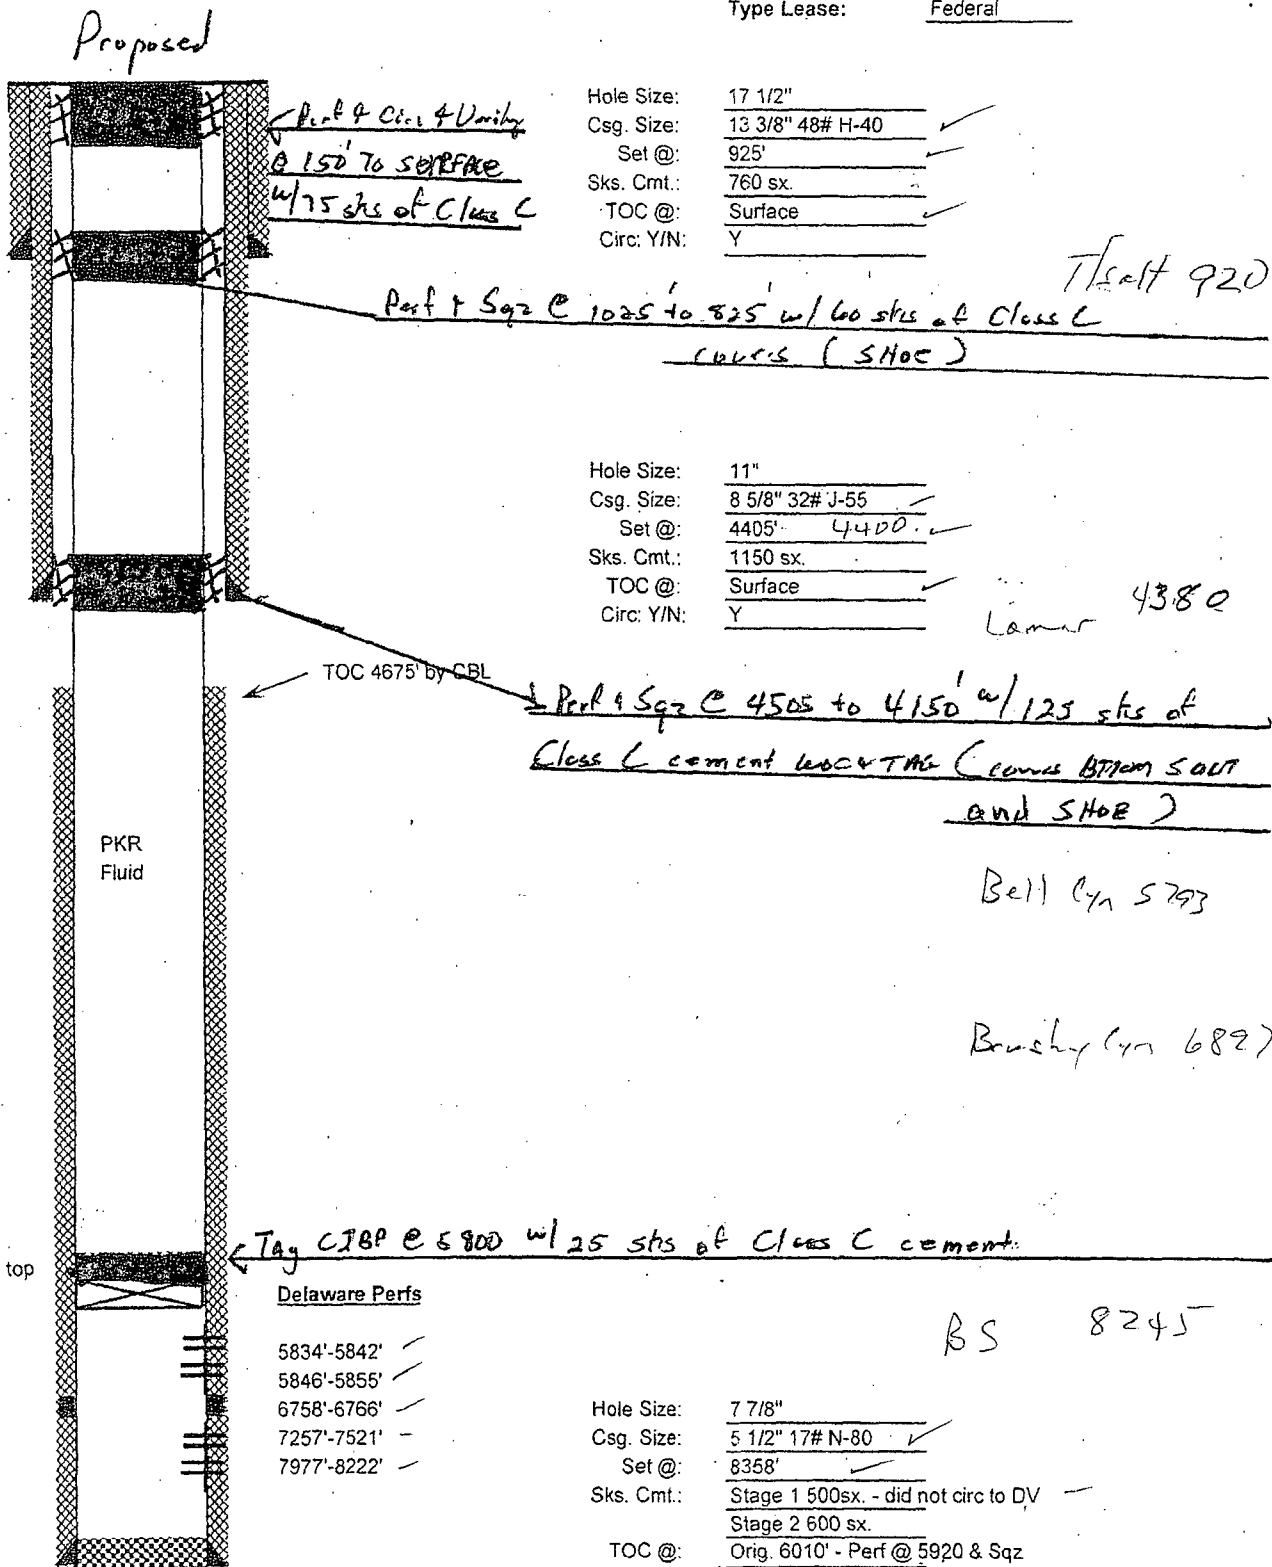 Type Lease: Federal
Proposed
Perf & Circ & Verify
@ 150' To SURFACE
w/75 sks of Class C
Hole Size: 17 1/2"
Csg. Size: 13 3/8" 48# H-40
Set @: 925'
Sks. Cmt.: 760 sx.
TOC @: Surface
Circ: Y/N: Y
T/Salt 920
Perf & Sqz @ 1025' to 825' w/ 60 sks of Class C
covers (SHOE)
Hole Size: 11"
Csg. Size: 8 5/8" 32# J-55
Set @: 4405' 4400.
Sks. Cmt.: 1150 sx.
TOC @: Surface
Circ: Y/N: Y
Lamar 4380
TOC 4675' by CBL
Perf & Sqz @ 4505 to 4150' w/ 125 sks of
Class C cement WOC & TAG (covers BTTOM SALT
and SHOE)
PKR
Fluid
Bell Cyn 5793
Brushy Cyn 6897
Tag CIBP @ 5800 w/ 25 sks of Class C cement.
top
Delaware Perfs
5834'-5842'
5846'-5855'
6758'-6766'
7257'-7521'
7977'-8222'
BS 8245
Hole Size: 7 7/8"
Csg. Size: 5 1/2" 17# N-80
Set @: 8358'
Sks. Cmt.: Stage 1 500sx. - did not circ to DV
Stage 2 600 sx.
TOC @: Orig. 6010' - Perf @ 5920 & Sqz